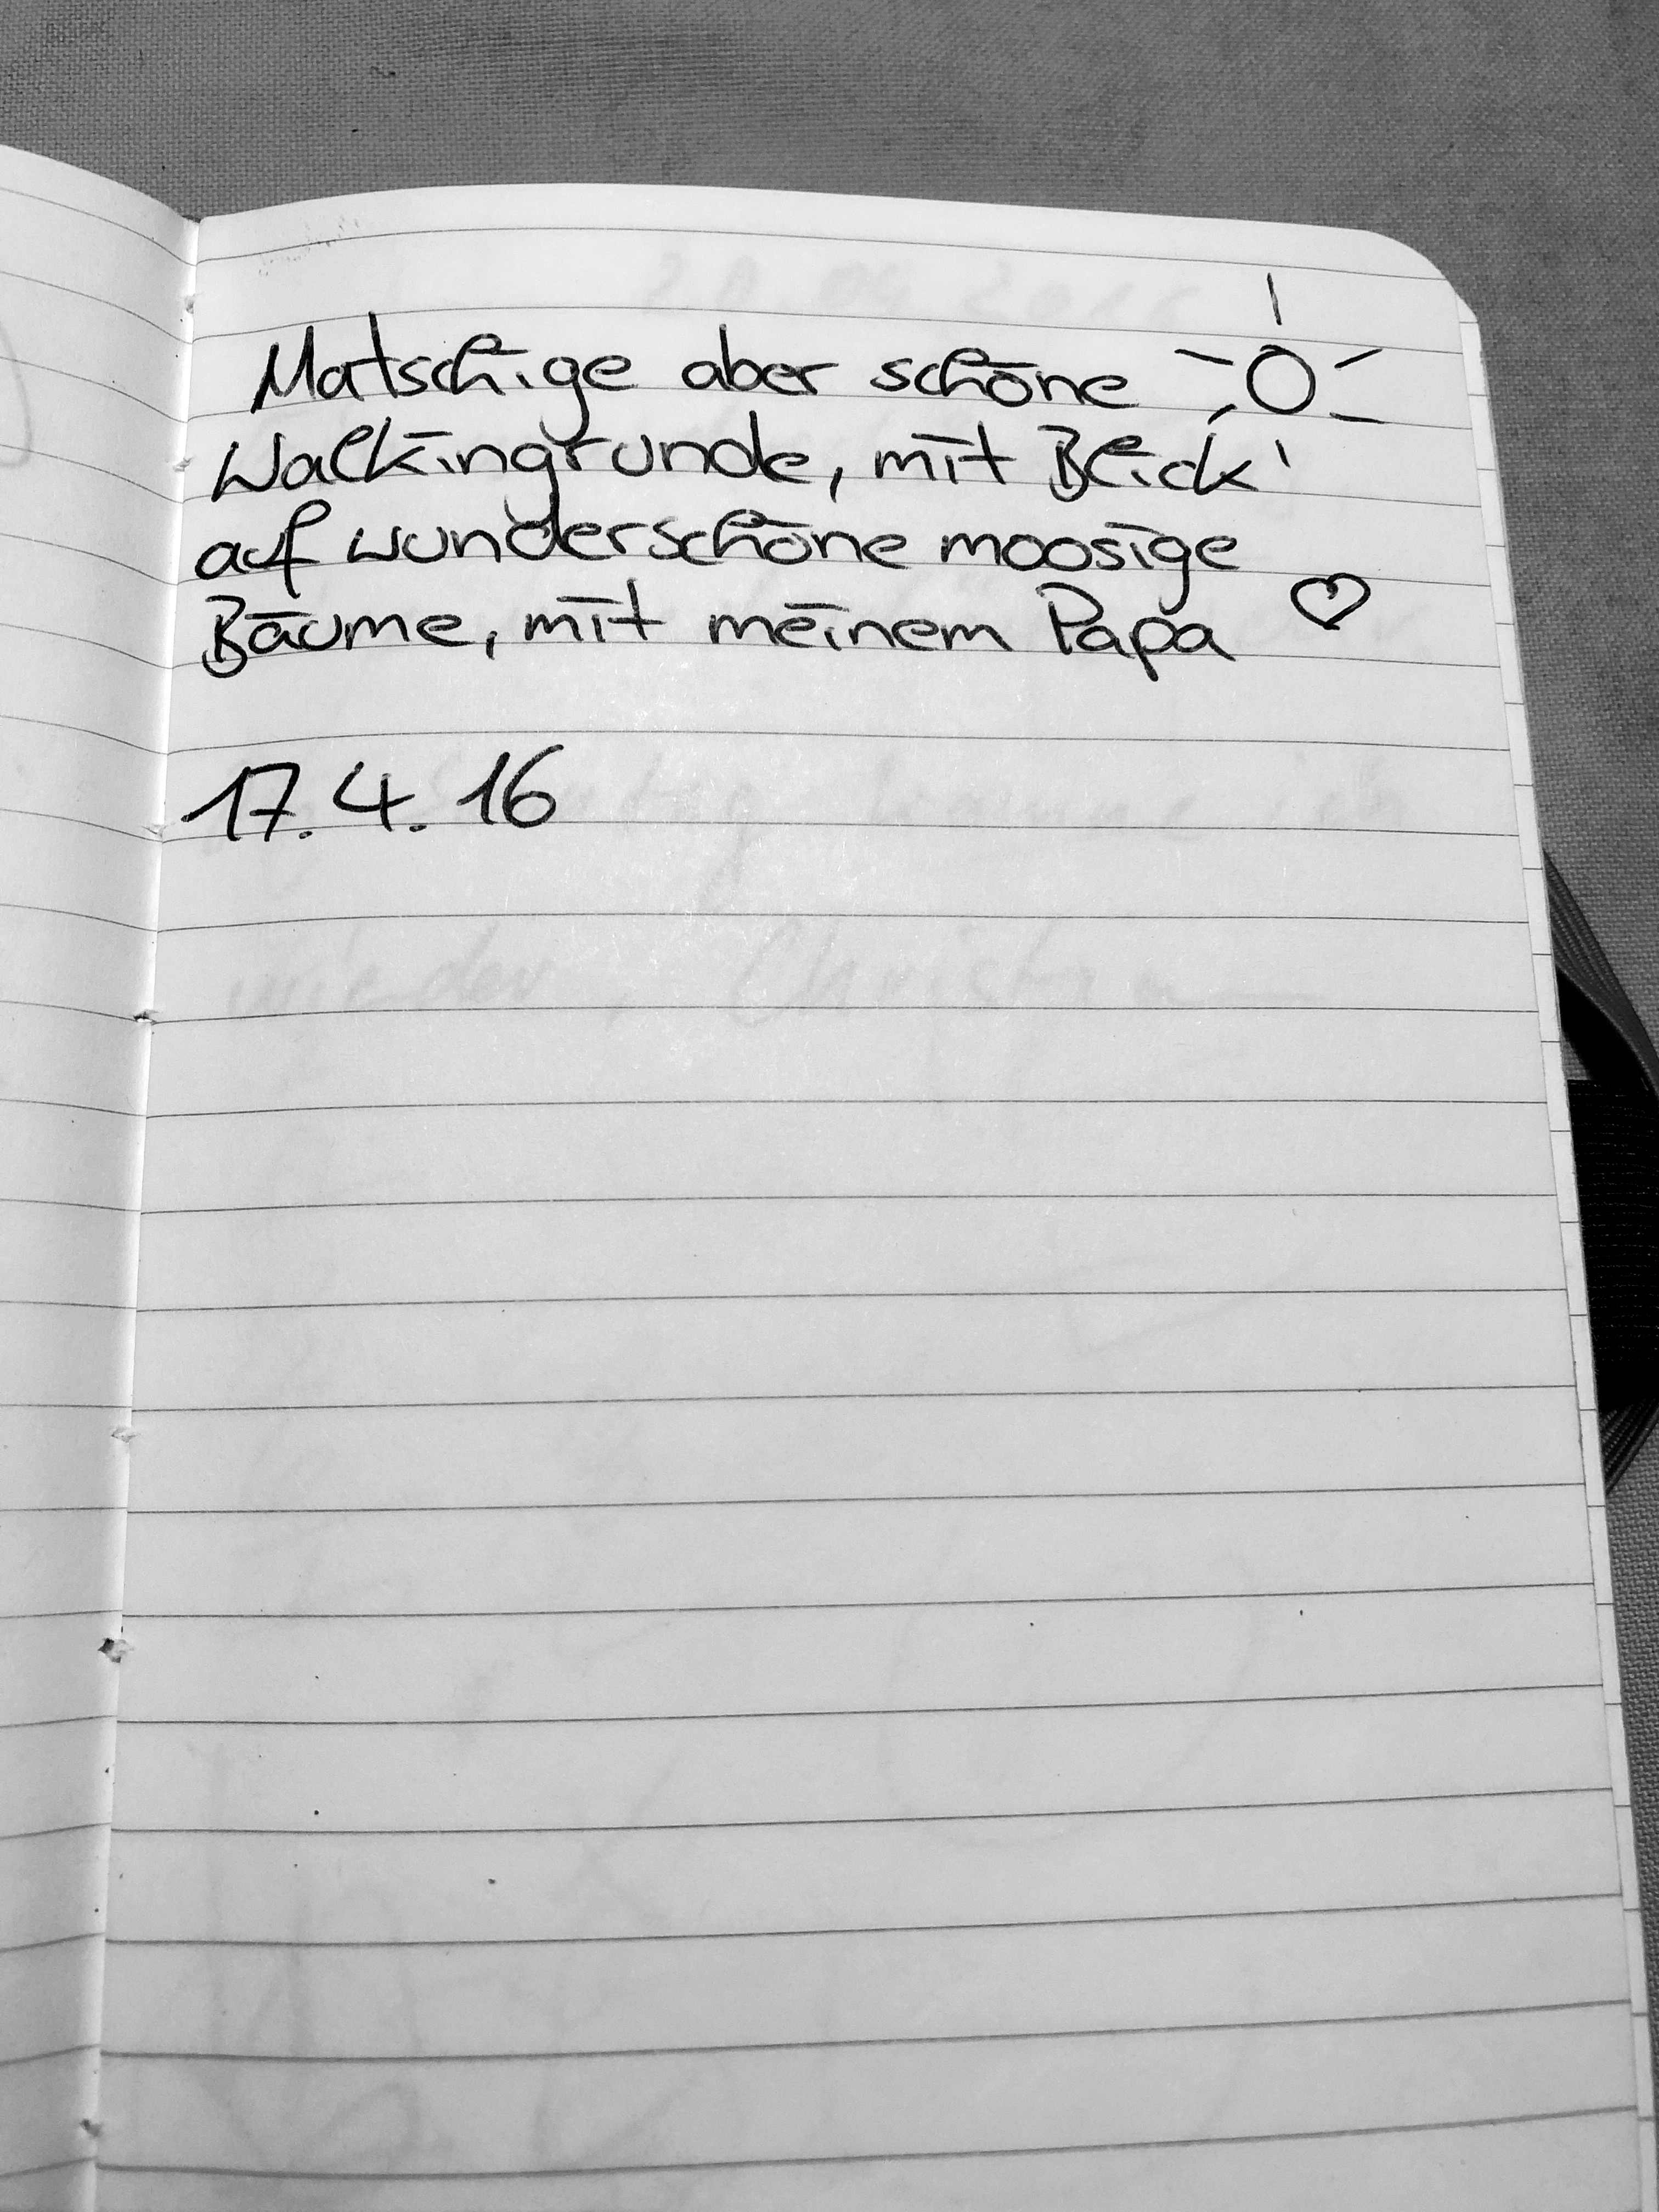 Matschige aber schöne
Walkingrunde, mit Blick
auf wunderschöne moosige
Bäume, mit meinem Papa ♡
17.4.16